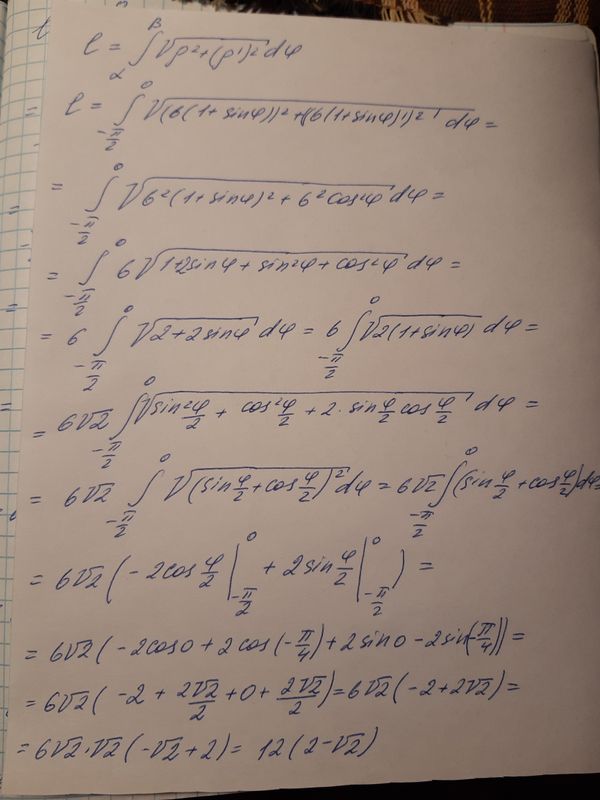 l = ∫_α^β √(ρ²+(ρ')²) dφ
= l = ∫_{-π/2}^0 √((6(1+sinφ))²+((6(1+sinφ)')²) dφ =
= ∫_{-π/2}^0 √(6²(1+sinφ)²+6²cos²φ) dφ =
= ∫_{-π/2}^0 6√(1+2sinφ+sin²φ+cos²φ) dφ =
= 6 ∫_{-π/2}^0 √(2+2sinφ) dφ = 6 ∫_{-π/2}^0 √(2(1+sinφ)) dφ =
= 6√2 ∫_{-π/2}^0 √(sin²φ/2 + cos²φ/2 + 2·sin φ/2 cos φ/2) dφ =
= 6√2 ∫_{-π/2}^0 √((sin φ/2 + cos φ/2)²) dφ = 6√2 ∫_{-π/2}^0 (sin φ/2 + cos φ/2) dφ =
= 6√2 ( -2cos φ/2 |_{-π/2}^0 + 2sin φ/2 |_{-π/2}^0 ) =
= 6√2 ( -2cos0 + 2cos(-π/4) + 2sin0 - 2sin(-π/4)) =
= 6√2 ( -2 + 2√2/2 + 0 + 2√2/2 ) = 6√2 (-2+2√2) =
= 6√2·√2 (-√2+2) = 12(2-√2)